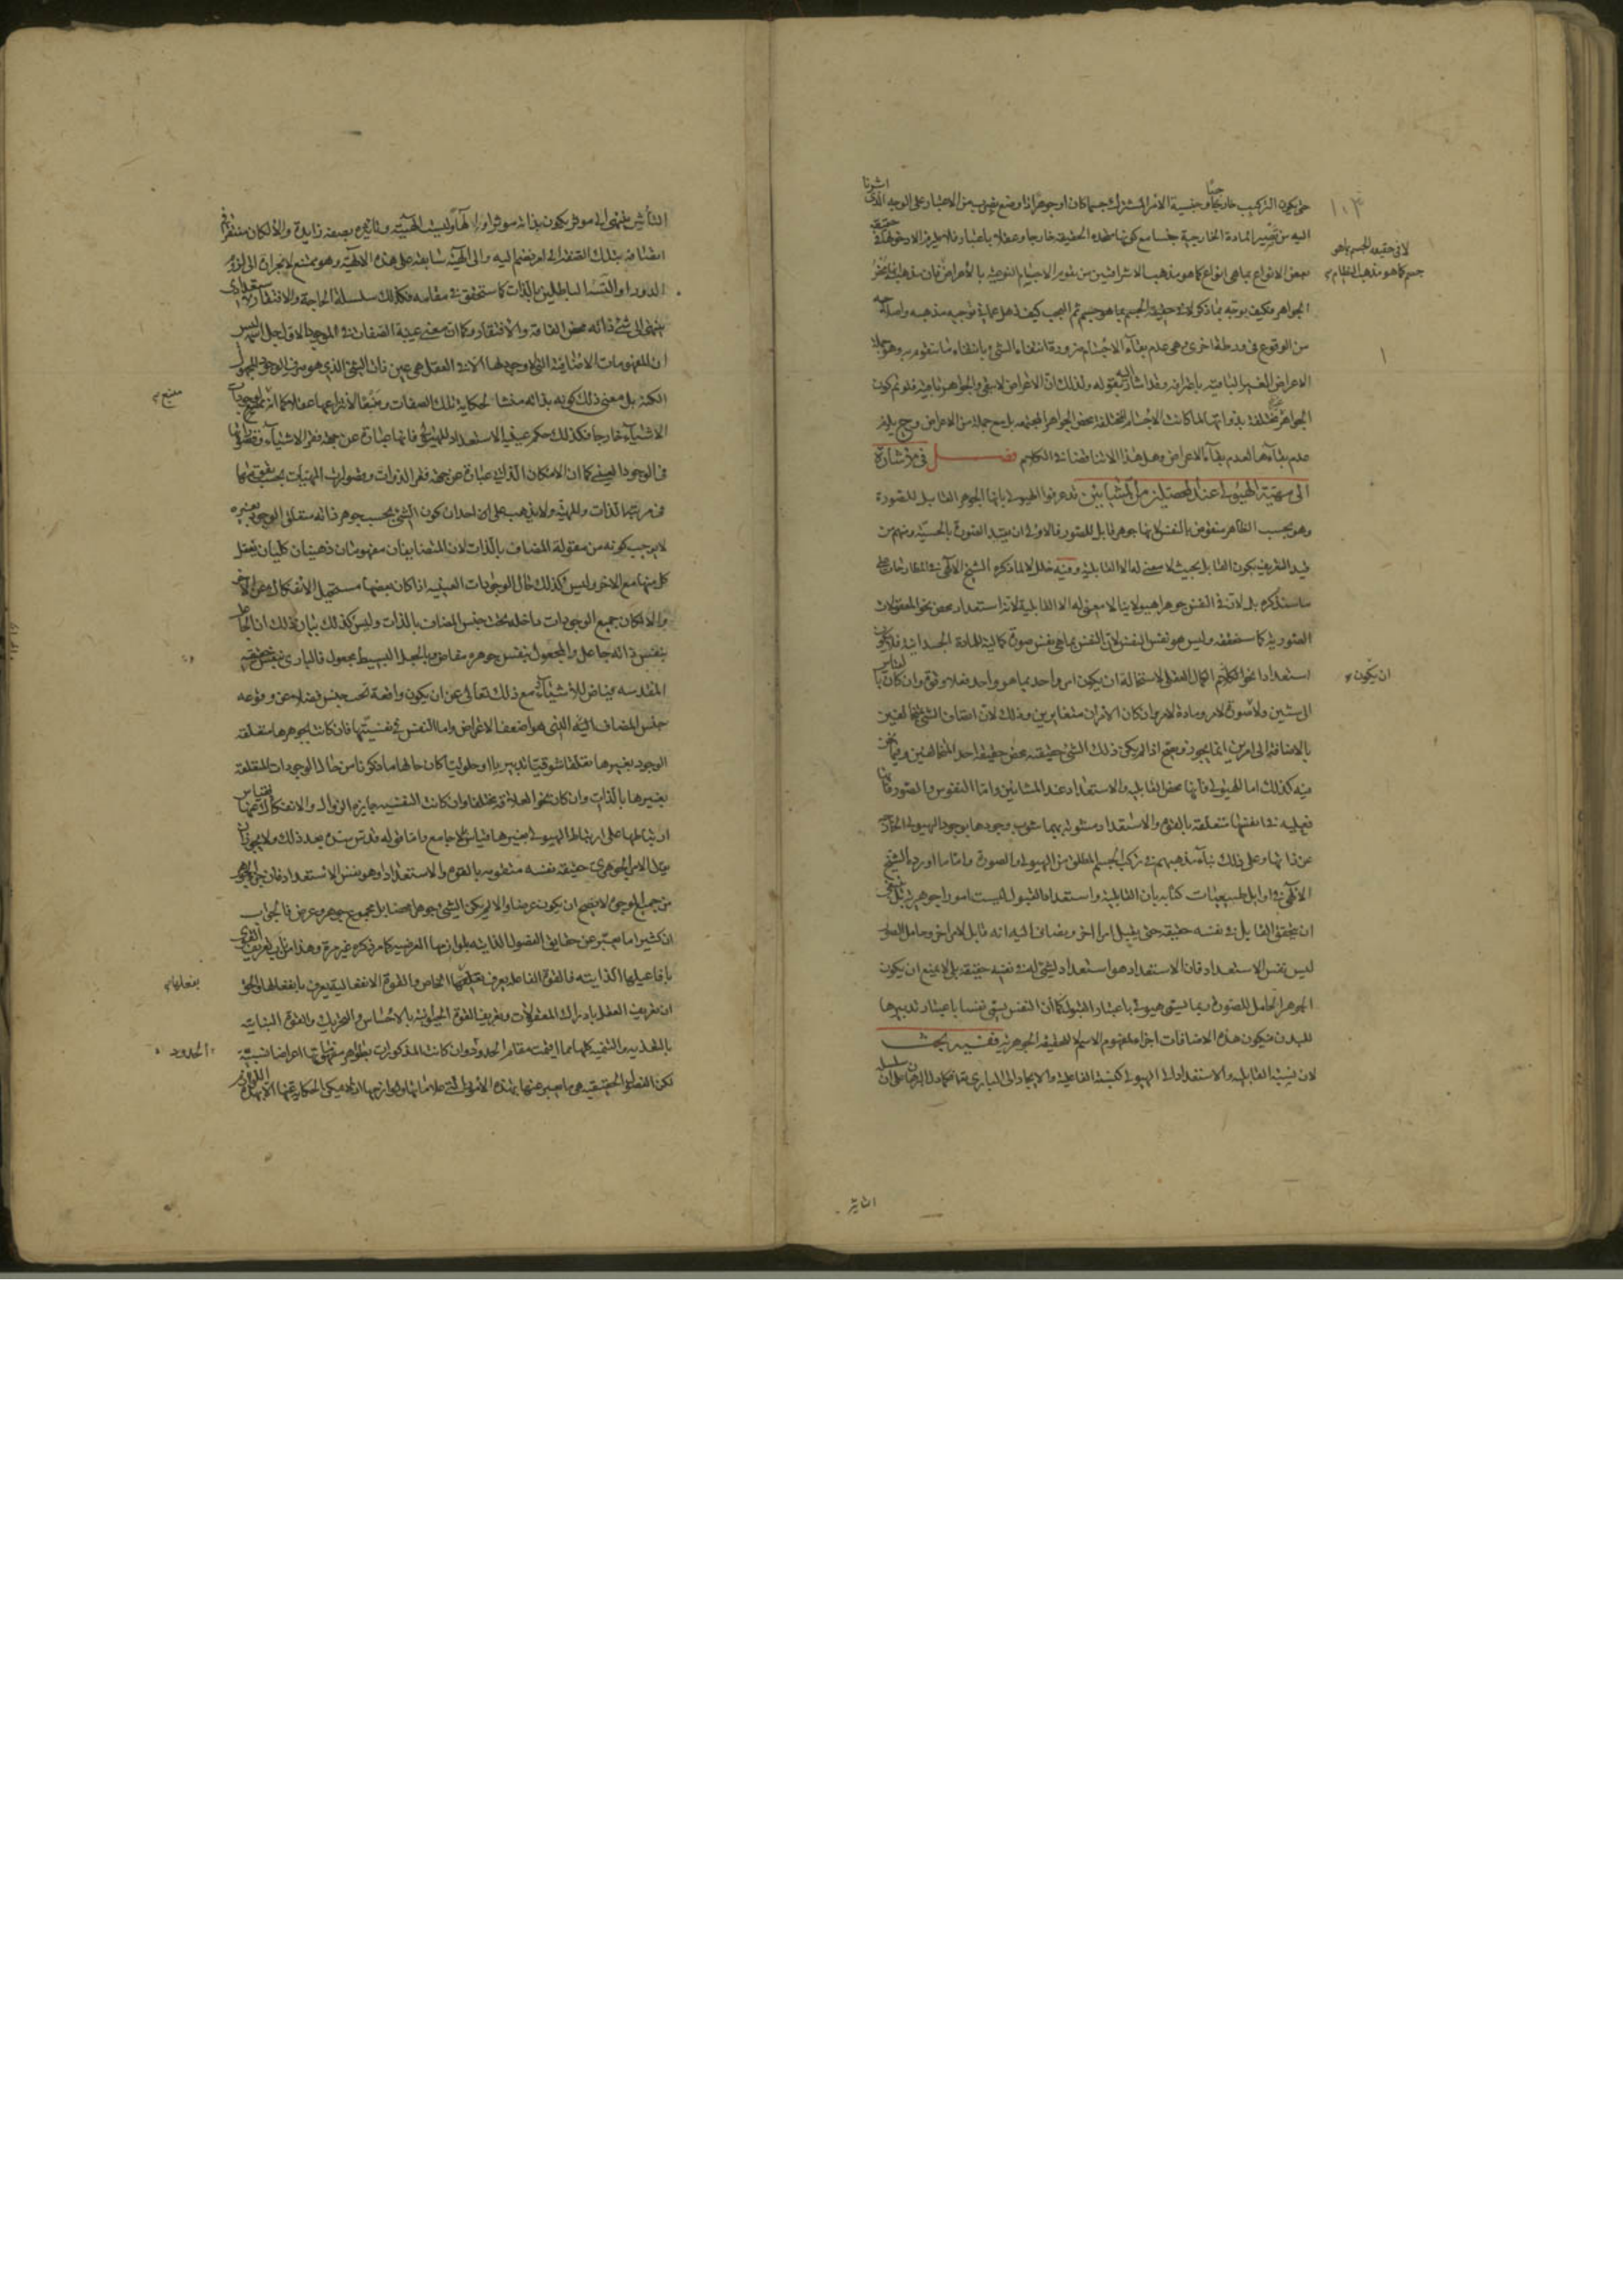 حتى يكون التركيب خارجيا وجنسية الامر المشترك جسما كان او جوهرا اذا وضع بضرب من الاعتبار على الوجه الذى اشرنا
اليه من تصيير المادة الخارجية جنسا مع كونها متحدة الحقيقة خارجا وعقلا باعتبار فلا يلزم الا دخولها فى حقيقة
بعض الانواع بما هى انواع كما هو مذهب الاشراقيين من تقويم الاجسام النوعية بالاعراض فان مذهبه
الجواهر فكيف يوجه بما ذكر لا فى حقيقة الجسم بما هو جسم ثم العجب كيف ذهل عما فى توجيه مذهبه واصلاحه
لا فى حقيقة الجسم بما هو
جسم كما هو مذهب النظام
من الوقوع فى ورطة اخرى وهى عدم بقاء الاجسام ضرورة انتفاء الشئ بانتفاء ما يتقوم به وهو جملة
الاعراض الغير الباقية باطرافه وقد اشار اليه بقوله ولذلك ان الاعراض لا تبقى والجواهر باقية فلو لم يكن
الجواهر مختلفة بذواتها لما كانت الاجسام المختلفة محض الجواهر المجتمعة بل مع جملة من الاعراض وح يلزم
عدم بقاءها لعدم بقاء الاعراض وهل هذا الا تناقضا فى الكلام فصل فى الاشارة
الى مهية الهيولى عند المحصلين من المشائين قد عرفوا الهيولى بانها الجوهر القابل للصورة
وهو بحسب الظاهر منقوض بالنفس لانها جوهر قابل للصور فالاولى ان يقيد الصورة بالحسية ومنهم من
قيد التعريف بكون القابل بحيث لا معنى له الا القابلية وفيه خلل لا لما ذكره الشيخ الالهى فى المطارحات على
ما سنذكره بل لان فى النفس جوهرا هيولانيا لا معنى له الا القابلية لانه استعداد محض نحو المعقولات
الصورية كما ستحققه وليس هو نفس النفس لان النفس بما هى نفس صورة كمالية للمادة الجسدانية فلا يكون
استعدادا نحو الكمال العقلى لاستحالة ان يكون امر واحد بما هو واحد فعلا وقوة وان كان بالقياس
ان يكون
الى شيئين ولا صورة لامر ومادة لامر وان كان الامران متغايرين وذلك لان اضافة الشئ المتخالفين
بالاضافة الى امرين انما يجوز ويصح اذا لم يكن ذلك الشئ حقيقته محض حقيقة احد المتخالفين وفيما نحن
فيه كذلك اما الهيولى فانها محض القابلية والاستعداد عند المشائين واما النفوس والصور فانها
فعلية ذاتها متعلقة بالقوة والاستعداد مشوبة بهما شوب وجودها بوجود الهيولى الخارجة
عن ذاتها وعلى ذلك بناء مذهبهم فى تركب الجسم المطلق من الهيولى والصورة واما ما اورده الشيخ
الالهى فى اوايل طبيعيات كتابه بان القابلية واستعداد القبول ليست امورا جوهرية بل ينبغى
ان يتحقق القابل فى نفسه حقيقة حتى يقبل امرا اخر ويضاف اليه انه قابل لامر اخر وحامل الصور
ليس نفس الاستعداد فان الاستعداد هو استعداد لشئ له فى نفسه حقيقة بلى لا يمنع ان يكون
الجوهر الحامل للصورة ربما يسمى هيولى باعتبار القبول كما ان النفس يسمى نفسا باعتبار تدبيرها
للبدن فيكون هذه الاضافات اجزاء لمفهوم الاسم لا للحقيقة الجوهرية ففيه بحث
لان نسبة القابلية والاستعداد الى الهيولى كنسبة الفاعلية والايجاد الى البارى تعالى فكما دل البرهان على ان سلسلة
التاثير
التأثير ينتهى الى موثر يكون بذاته موثرا
الدور او التسلسل الباطلين بالذات كما ستحقق فى مقامه فكذلك سلسلة الحاجة والافتقار
ينتهى الى شئ ذاته محض الفاقة والافتقار وكما ان معنى عينية الصفات فى الموجود الاول جل اسمه ليس
ان المفهومات الاضافية التى لا وجود لها الا فى العقل هى عين ذات الشئ الذى هو صرف الوجود المجهول
الكنه بل معنى ذلك كونه بذاته منشا لحكاية تلك الصفات ومنبعا لانتزاعها عقلا كما انه منبع لوجود
منبع
الاشياء خارجا فكذلك حكم عينية الاستعداد للهيولى فانها عبارة عن جهة فقر الاشياء وقصورها
فى الوجود العينى كما ان الامكان الذاتى عبارة عن جهة فقر الذوات وقصورات المهيات بحسب
فى مرتبة الذات والمهية ولا يذهب على احد ان كون الشئ بحسب جوهر ذاته متعلق الوجود بغيره
لا يوجب كونه من مقولة المضاف بالذات لان المتضايفان مفهومان ذهنيان كليان يعقل
كل منهما مع الاخر وليس كذلك حال الوجودات العينية اذا كان بعضها مستحيل الانفكاك عن الاخر
والا لكان جميع الوجودات داخلة تحت جنس المضاف بالذات وليس كذلك بيان ذلك ان الجاعل
بنفس ذاته جاعل والمجعول بنفس جوهره مفاض وبالجعل البسيط مجعول فالبارى بنفس حقيقته
المقدسة فياض للاشياء مع ذلك تعالى عن ان يكون واقعة تحت جنس فضلا عن وقوعه
جنس المضاف اليه الذى هو اضعف الاعراض واما النفس فى نفسيتها فان كانت بجوهرها متعلقة
الوجود بغيرها تعلقا شوقيا تدبيريا او حلوليا كان حالها ما ذكرنا من حال الوجودات المتعلقة
بغيرها بالذات وان كان نحو العلاقة مختلفا وان كانت النفسية جايزة الزوال والانفكاك عنها فقياس
ارتباطها على ارتباط الهيولى بغيرها قياس بلا جامع واما قوله قدس سره بعد ذلك ولا يجوز ان
يقال الامر الجوهرى حقيقة نفسه متقومة بالقوة والاستعداد او هو نفس الاستعداد فان جزء الجوهر
من جميع الوجوه لا يصح ان يكون عرضا والا لم يكن الشئ جوهرا محضا بل مجموع جوهر وعرض فالجواب
ان كثيرا ما يعبر عن حقايق الفصول الذاتية بلوازمها العرضية كما مر ذكره غير مرة وهذا من باب تعريف القوى
بافاعيلها الذاتية فالقوة الفاعلة يعرف بفعلها الخاص والقوة الانفعالية يعرف بانفعالها
بفعلها
ان تعريف العقل بادراك المعقولات وتعريف القوة الحيوانية بالاحساس والتحريك والقوة النباتية
بالتغذية والتنمية كلها مما اقيمت مقام الحدود وان كانت المذكورات بظواهر مفهوماتها اعراضا نسبية
الحدود
لكن الفصول الحقيقية هى ما يعبر عنها بهذه الامور التى علاماتها ولوازمها اذ لا يمكن الحكاية عنها الا بهذه اللوازم